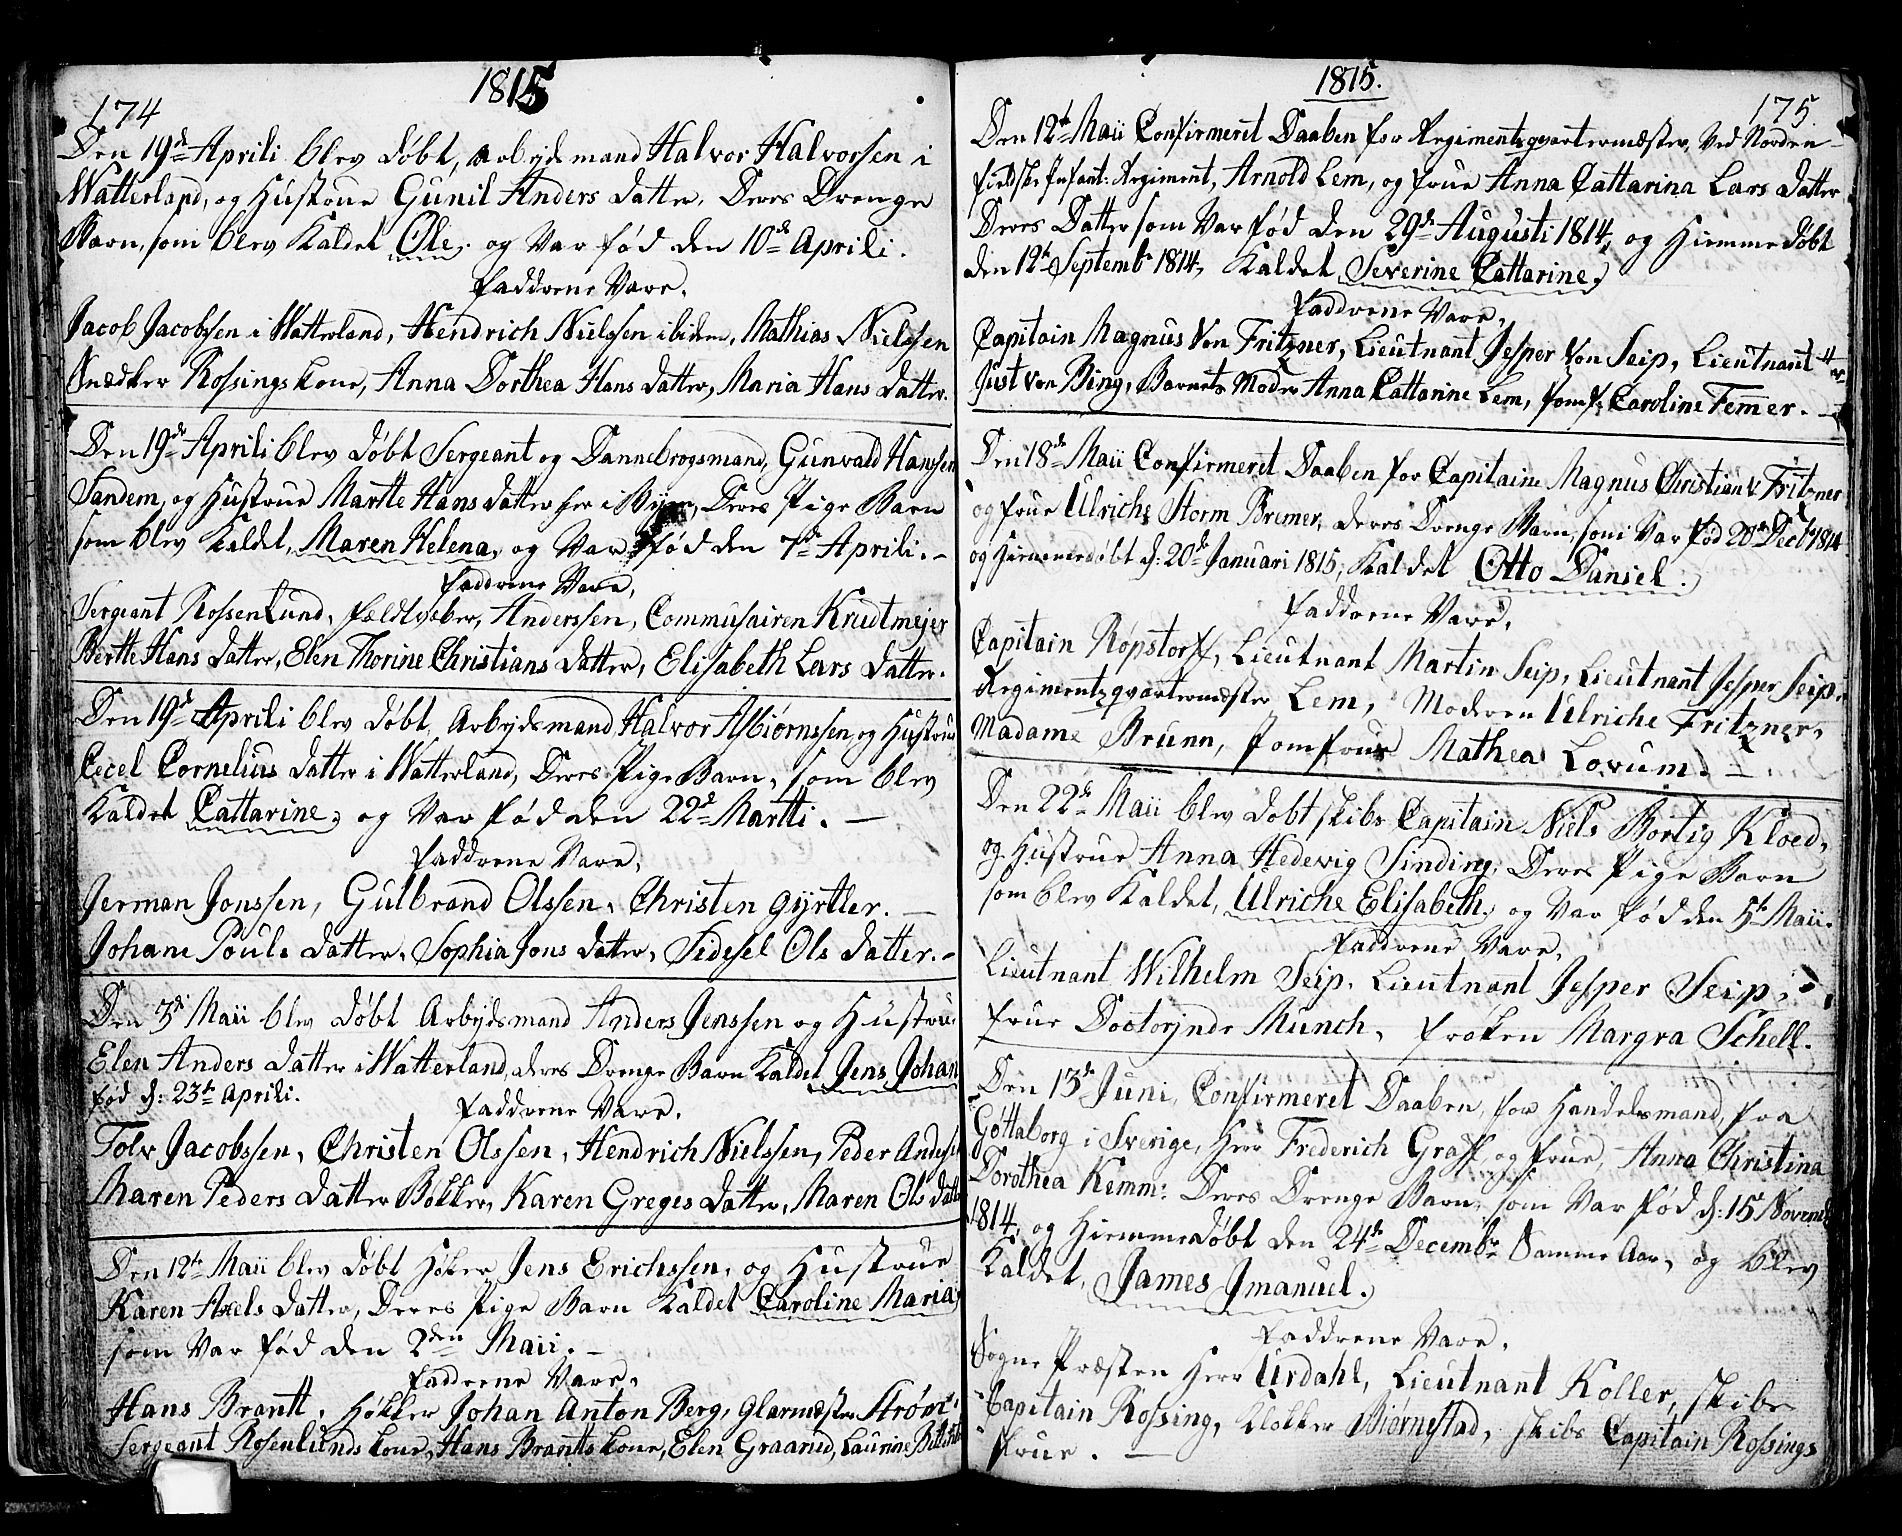 1815
174
Den 19de Aprili blev døbt, Arbejdsmand Halvor Halvorssen i
Watterland, og Hustrue Gunil Anders datter, Deres Drenge
Barn, som blev Kaldet Ole, og Var fød den 10de Aprili.
Faddrene Vare,
Jacob Jacobssen i Watterland, Hendrich Nielssen ibidem, Mathias Nielssen
Snædker Rossings kone, Anna Dorthea Hans datter, Maria Hans datter.
Den 19de Aprili blev døbt Sergeant og Dannebrogsmand, Gunvald Hanssen
Sandem, og Hustrue Martte Hans datter her i Byen, Deres Pige Barn
som blev Kaldet, Maren Helena, og Var fød den 7de Aprili. –
Faddrene Vare,
Sergeant Rossenlund, Feldtveber, Anderssen, Commusairen Krudtmejer
Bertte Hans datter, Elen Thorine Christians datter, Elisabeth Lars datter.
Den 19de Aprili blev døbt Arbejdsmand Halvor Asbiørnssen og Hustrue
Cecel Cornelius datter i Watterland, Deres Pige Barn, som blev
Kaldet Cattarine, og Var fød den 22de Martti. –
Faddrene Vare,
Jerman Jonssen, Gulbrand Olssen, Christen gyrtler. –
Johane Pouls datter, Sophia Jons datter, Sidesel Ols datter. –
Den 3de Maii blev døbt Arbejdsmand Anders Jenssen og Hustrue
Elen Anders datter i Watterland, deres Drenge Barn Kaldet Jens Johan
fød d: 23de Aprili.
Faddrene Vare.
Tolv Jacobssen, Christen Olssen, Hendrich Nielssen, Peder Anders
Maren Peders datter Bøkker, Karen Greges datter, Maren Ols datter
Den 12te Maii blev døbt Høker Jens Erichssen, og Hustrue
Karen Axels datter, Deres Pige Barn Kaldet Caroline Maria,
som Var fød den 2den Maii. –
Faddrene Vare,
Hans Brantt, Høkker Johan Anton Berg, Glarmæster Strøm,
Sergeant Rosenlunds kone, Hans Brantts kone, Elen Graarud, Laurine
1815.
175.
Den 12te Maii Confirmeret Daaben for Regimentsqvartermæster, Ved Norden-
fieldske Infant: Regiment, Arnold Lem, og frue Anna Cattarina Lars datter
Deres Datter som Var fød den 29de Augusti 1814, og Hiemmedøbt
den 12te Septembr 1814, Kaldet Severine Cattarine.
Faddrene Vare,
Capitain Magnus Von Fritzner, Lieutnant Jesper Von Seip, Lieutnant
Just Von Bing, Barnets Moder Anna Cattarine Lem, Jomf: Caroline Femmer. –
Den 18de Maii Confirmeret Daaben for Capitaine Magnus Christian v Fritzner
og frue Ulriche Storm Bremer, deres Drenge Barn, som Var fød 20de Decbr 1814
og Hiemmedøbt d: 20de Januari 1815, Kaldet Otto Daniel.
Faddrene Vare,
Capitain Røpstorf, Lieutnant Martin Seip, Lieutnant Jesper Seip,
Regimentzqvartermæster Lem, Moderen Ulriche Fritzner,
Madame Brunn, Jomfrue Mathea Lovum. –
Den 22de Maii blev døbt skibs Capitain Niels Bortig Kloed,
og Hustrue Anna Hedevig Sinding, Deres Pige Barn
som blev Kaldet, Ulriche Elisabeth, og Var fød den 5te Maii.
Faddrene Vare,
Lieutnant Wilhelm Seip, Lieutnant Jesper Seip,
frue Doctorinde Munch, frøken Margra Schell.
Den 13de Juni, Confirmeret Daaben, for Handelsmand, fra
Gøttaborg i Sverige, Herr Frederich Graff, og frue, Anna Christina
Dorothea Kemm: Deres Drenge Barn, som Var fød d: 15 Novemb
1814, og Hiemmedøbt den 24de Decembr Samme Aar, og blev
Kaldet, James Imanuel.
Faddrene Vare,
Sogne Præsten Herr Urdahl, Lieutnant Koller, skibs
Capitain Rossing, Klokker Biørnstad, skibs Capitain Rossings
frue. –